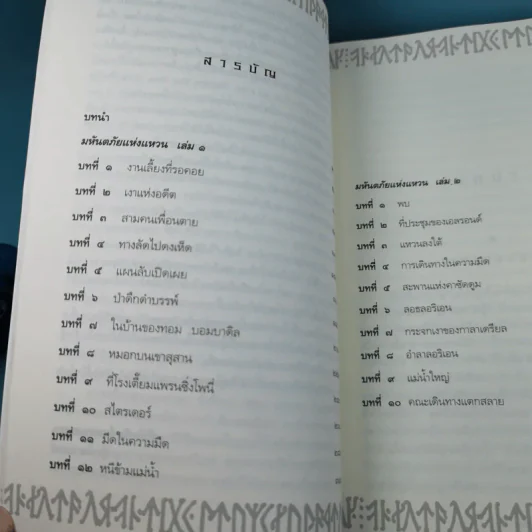 สารบัญ
บทนำ
มหันตภัยแห่งแหวน เล่ม ๑
บทที่ ๑ งานเลี้ยงที่รอคอย
บทที่ ๒ เงาแห่งอดีต
บทที่ ๓ สามคนเพื่อนตาย
บทที่ ๔ ทางลัดไปดงเห็ด
บทที่ ๕ แผนลับเปิดเผย
บทที่ ๖ ป่าดึกดำบรรพ์
บทที่ ๗ ในบ้านของทอม บอมบาดิล
บทที่ ๘ หมอกบนเขาสุสาน
บทที่ ๙ ที่โรงเตี๊ยมแพรนซิ่งโพนี่
บทที่ ๑๐ สไตรเดอร์
บทที่ ๑๑ มีดในความมืด
บทที่ ๑๒ หนีข้ามแม่น้ำ
มหันตภัยแห่งแหวน เล่ม ๒
บทที่ ๑ พบ
บทที่ ๒ ที่ประชุมของเอลรอนด์
บทที่ ๓ แหวนลงใต้
บทที่ ๔ การเดินทางในความมืด
บทที่ ๕ สะพานแห่งคาซัดดูม
บทที่ ๖ ลอธลอริเอน
บทที่ ๗ กระจกเงาของกาลาเดรียล
บทที่ ๘ อำลาลอริเอน
บทที่ ๙ แม่น้ำใหญ่
บทที่ ๑๐ คณะเดินทางแตกสลาย